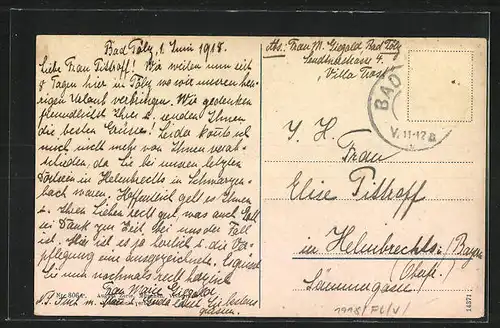 Bad Tölz, 1. Juni 1918.
Liebe Frau Pitthoff! Wir weilen nun seit
8 Tagen hier in Tölz, wo wir unsern heu-
rigen Urlaub verbringen. Wir gedenken
freundlichst Ihrer u. senden Ihnen
die besten Grüsse! Leider konnte ich
mich nicht mehr von Ihnen verab-
schieden, da Sie bei unserm letzten
in Helmbrechts in Schwarzen-
bach waren. Hoffentlich geht es Ihnen
u. Ihren Lieben recht gut, was auch Gott
sei Dank zur Zeit bei uns der Fall
ist. Hier ist es ja herrlich u. die Ver-
pflegung eine ausgezeichnete. Es grüsst
Sie und nochmals recht herzlich
Frau Marie Giegold
Abs: Frau M. Giegold, Bad Tölz
4.
Villa
BAD
V. 11-12 B
S. H.
Frau
Elise Pitthoff
in Helmbrechts / Bayern
(Oberfr.)
14371
1998/FL/V/